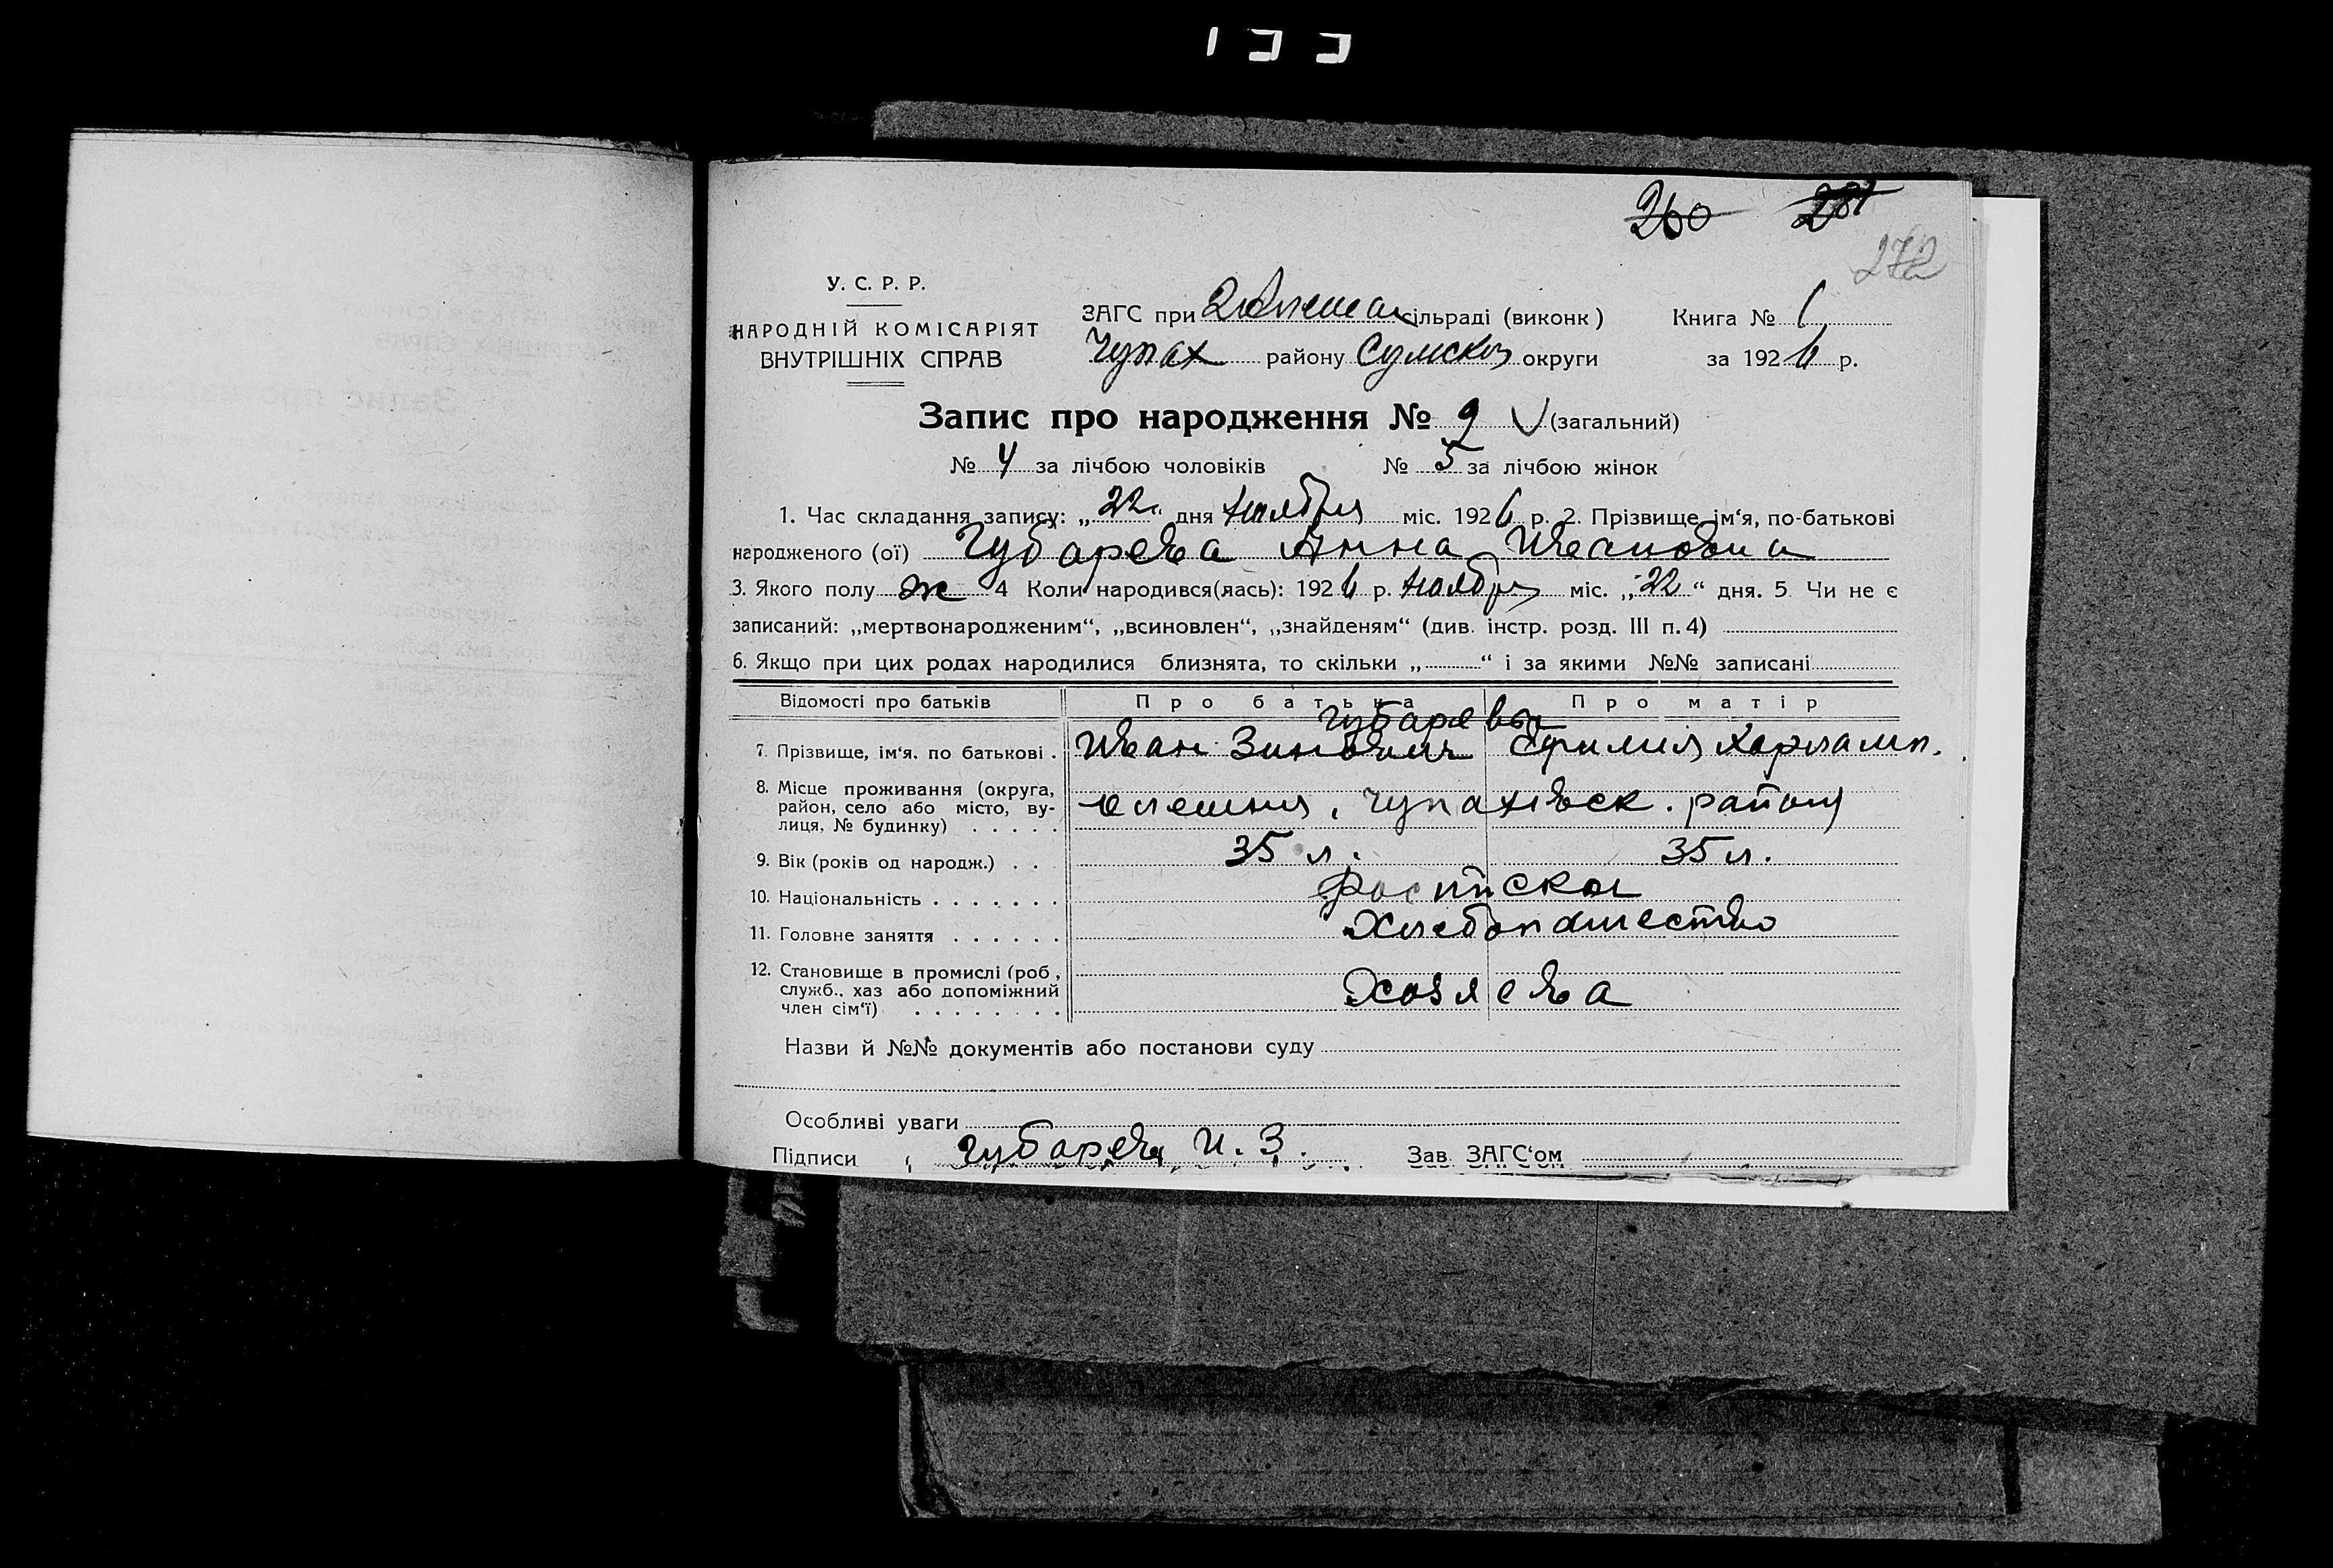 260 281
272
У. С. Р. Р.
НАРОДНІЙ КОМІСАРІЯТ
ВНУТРІШНІХ СПРАВ
ЗАГС при сільраді (виконк)
Чупах району Сумской округи
Книга № 1
за 1926 р.
Запис про народження № 9 (загальний)
№ 4 за лічбою чоловіків № 5 за лічбою жінок
1. Час складання запису: „22“ дня ноября міс. 1926 р. 2. Прізвище, ім‘я, по-батькові
народженого (ої) Чубарева Анна Ивановна
3. Якого полу ж 4 Коли народився(лась): 1926 р. ноября міс. „22“ дня. 5 Чи не є
записаний: „мертвонародженим“, „всиновлен“, „знайденям“ (див. інстр. розд. III п. 4)
6. Якщо при цих родах народилися близнята, то скільки „ “ і за якими №№ записані
Відомості про батьків Про батька Про матір
Чубаревы
7. Прізвище, ім‘я. по батькові . Иван Зиновьич Ефимия Харламп.
8. Місце проживання (округа,
район, село або місто, ву-
лиця, № будинку) . . . . .
Олешня, Чупаховск. району
9. Вік (років од народж.) . . 35 л. 35 л.
10. Національність . . . . . . .
11. Головне заняття . . . . . . Хлебопашество
12. Становище в промислі (роб,
служб., хаз або допоміжний
член сім‘ї) . . . . . . . .
Хозяева
Назви й №№ документів або постанови суду
Особливі уваги
Підписи Чубарева И. З. Зав. ЗАГС‘ом